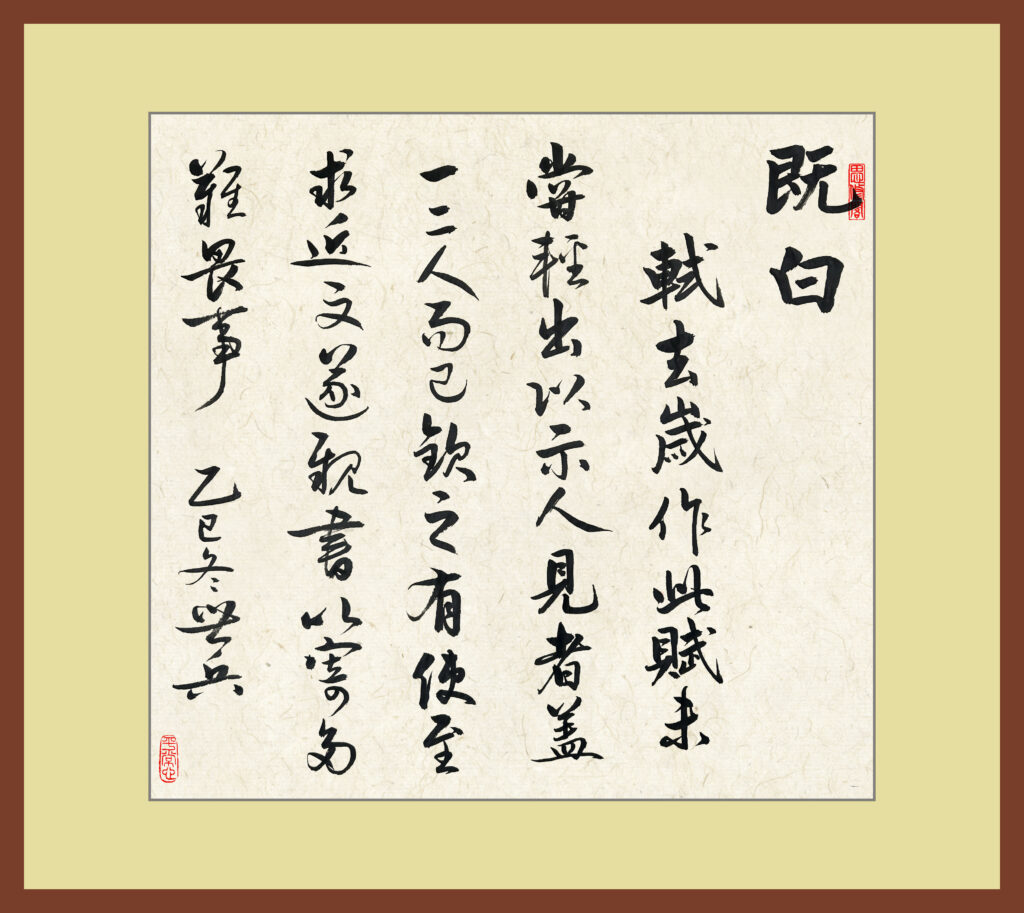 既白
軾去歲作此賦未
嘗輕出以示人見者盖
一二人而已欽之有使至
求近文遂親書以寄多
難畏事 乙巳冬 兵
平常心